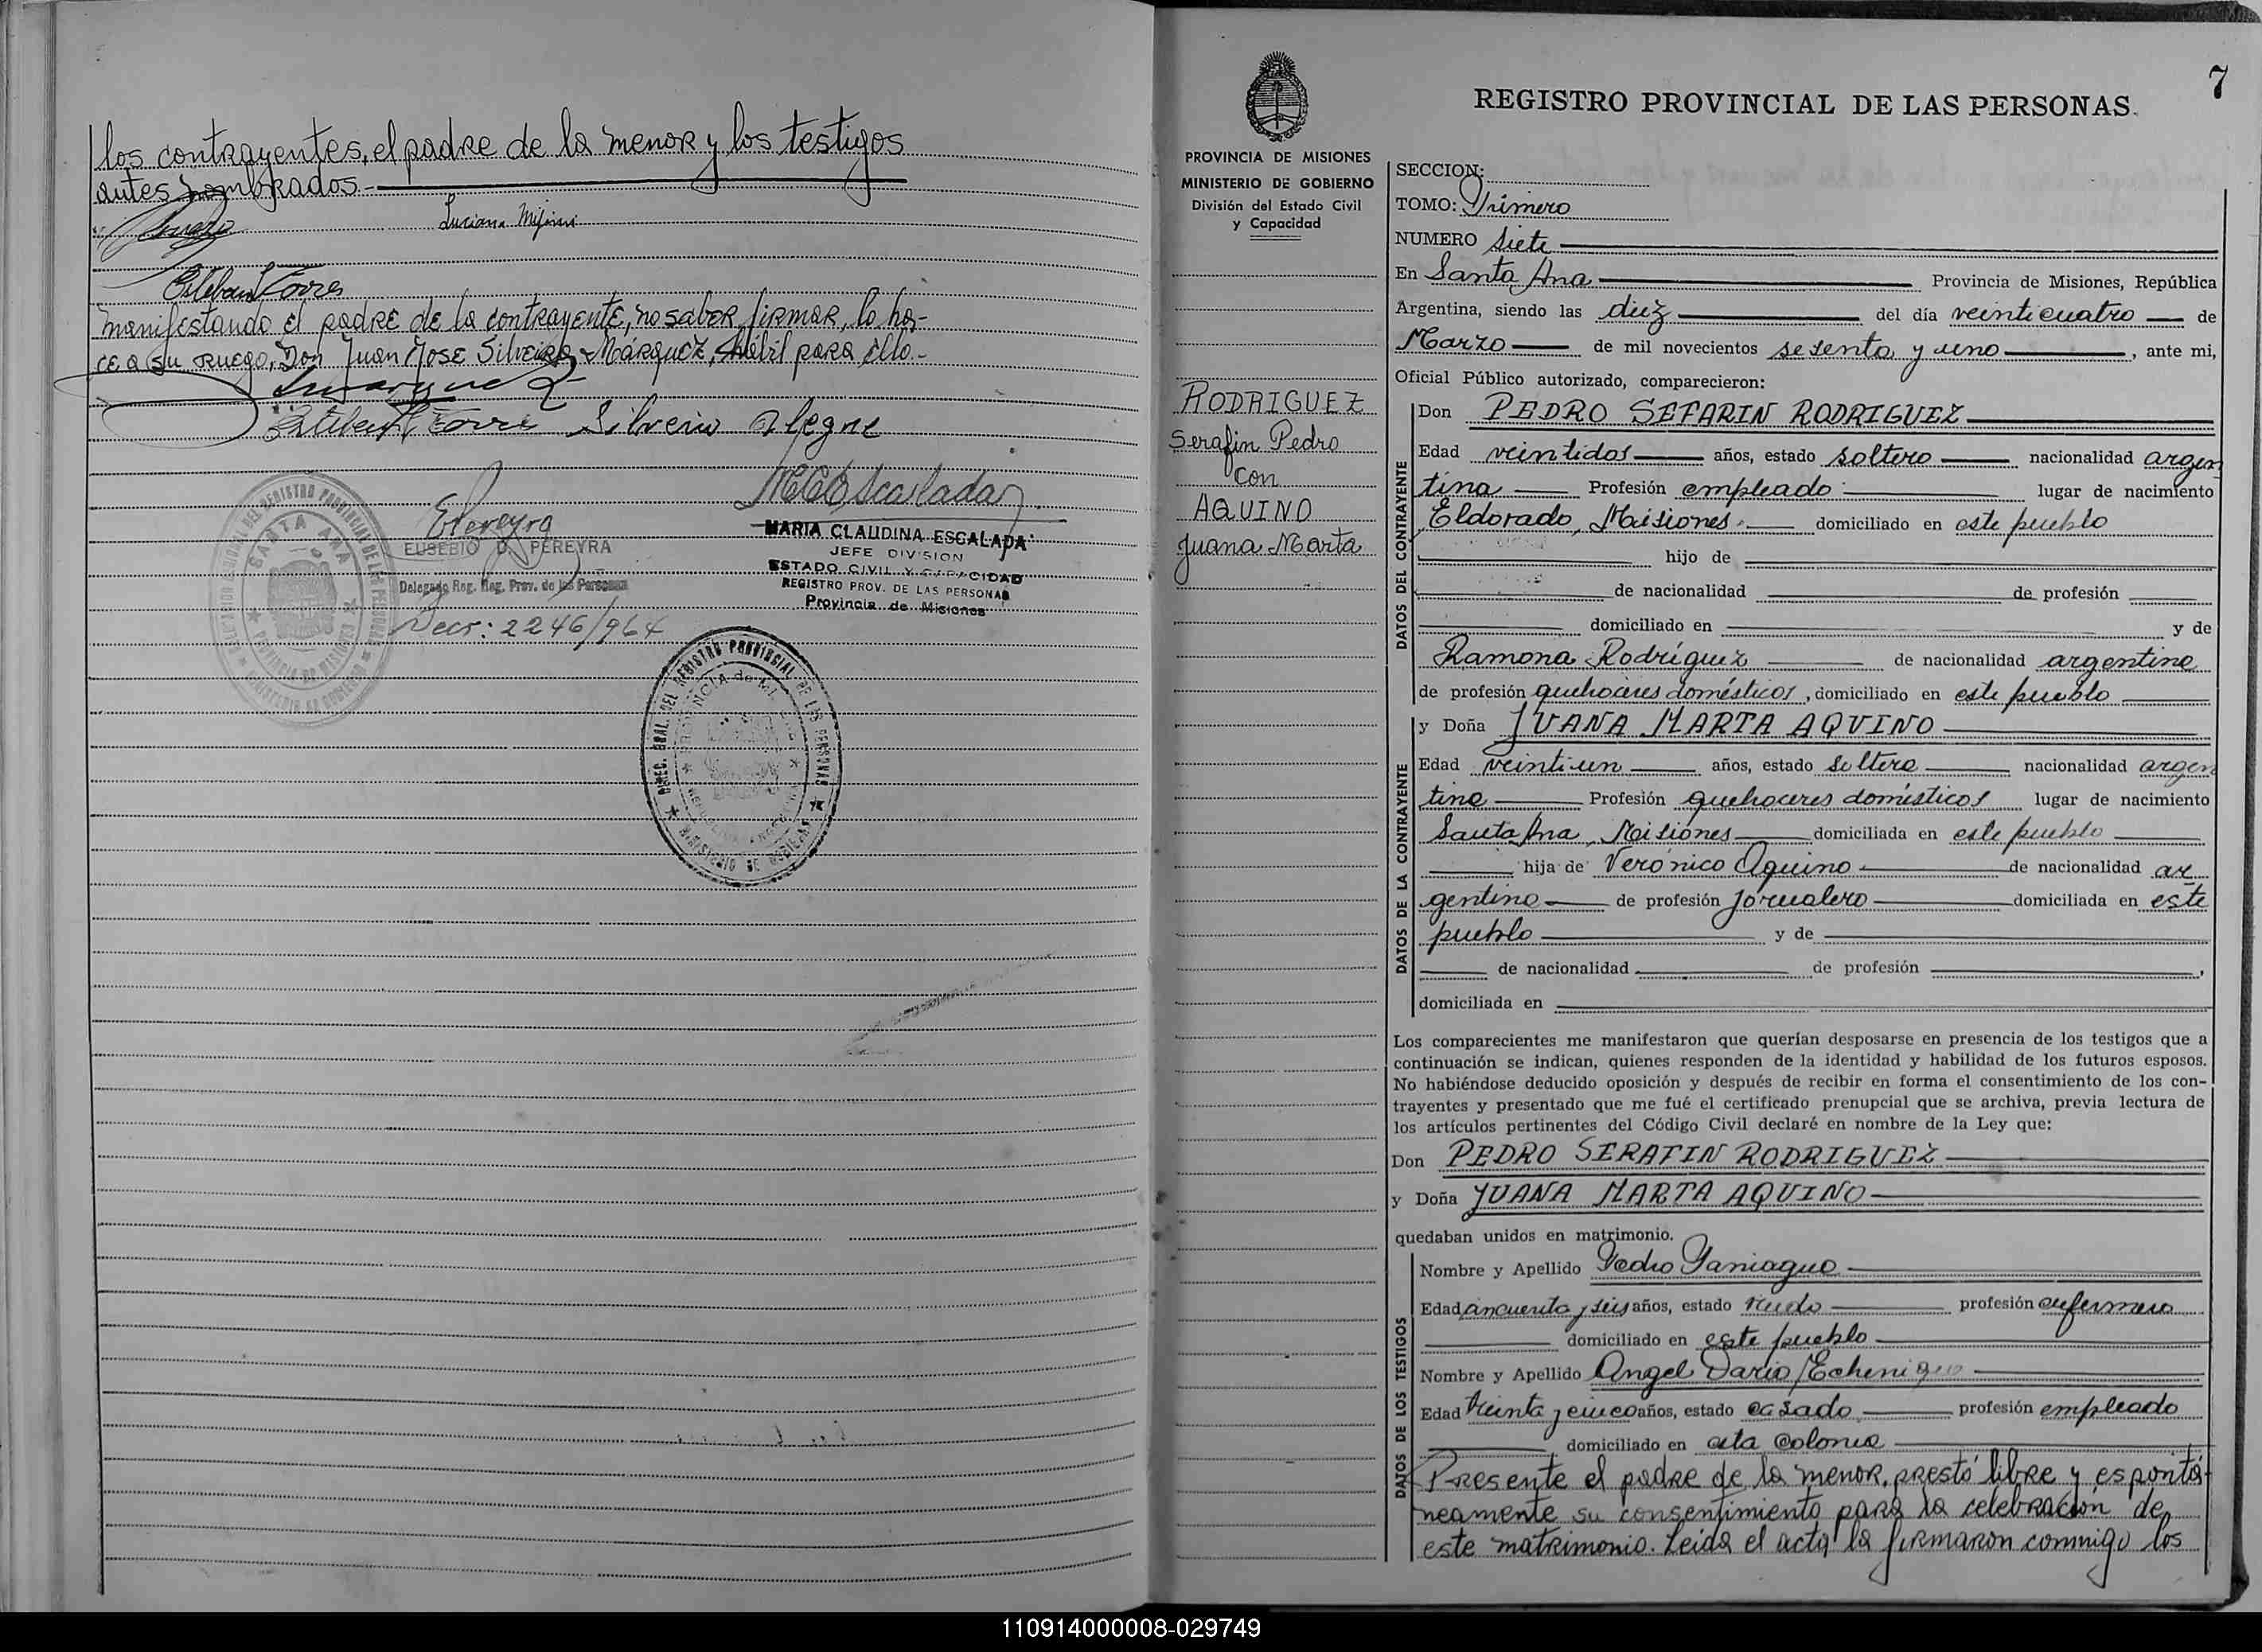 los contrayentes, el padre de la menor y los testigos
antes nombrados.-
Esteban Torres
manifestando el padre de la contrayente, no saber firmar, lo ha-
ce a su ruego, Don Juan José Silveira Márquez, hábil para ello.-
Silverio Alegre
EUSEBIO D. PEREYRA
Delegado Reg. Reg. Prov. de las Personas
Decr: 2246/964
MARIA CLAUDINA ESCALADA
JEFE DIVISION
ESTADO CIVIL Y CAPACIDAD
REGISTRO PROV. DE LAS PERSONAS
Provincia de Misiones
SANTA ANA
7
REGISTRO PROVINCIAL DE LAS PERSONAS.
PROVINCIA DE MISIONES
MINISTERIO DE GOBIERNO
División del Estado Civil
y Capacidad
RODRIGUEZ
Serafin Pedro
con
AQUINO
Juana Marta
SECCION:
TOMO: Primero
NUMERO Siete
En Santa Ana Provincia de Misiones, República
Argentina, siendo las diez del día veinticuatro de
Marzo de mil novecientos sesenta y uno, ante mi,
Oficial Público autorizado, comparecieron:
DATOS DEL CONTRAYENTE
Don PEDRO SEFARIN RODRIGUEZ
Edad veintidos años, estado soltero nacionalidad argen
tina Profesión empleado lugar de nacimiento
Eldorado, Misiones. domiciliado en este pueblo
hijo de
de nacionalidad de profesión
domiciliado en y de
Ramona Rodríguez de nacionalidad argentina
de profesión quehaceres domésticos, domiciliado en este pueblo
DATOS DE LA CONTRAYENTE
y Doña JUANA MARTA AQUINO
Edad veintiun años, estado soltera nacionalidad argen
tina Profesión quehaceres domésticos lugar de nacimiento
Santa Ana, Misiones domiciliada en este pueblo
hija de Verónico Aquino de nacionalidad ar
gentino de profesión Jornalero domiciliada en este
pueblo y de
de nacionalidad de profesión ,
domiciliada en
Los comparecientes me manifestaron que querían desposarse en presencia de los testigos que a
continuación se indican, quienes responden de la identidad y habilidad de los futuros esposos.
No habiéndose deducido oposición y después de recibir en forma el consentimiento de los con-
trayentes y presentado que me fué el certificado prenupcial que se archiva, previa lectura de
los artículos pertinentes del Código Civil declaré en nombre de la Ley que:
Don PEDRO SERAFIN RODRIGUEZ
y Doña JUANA MARTA AQUINO
quedaban unidos en matrimonio.
DATOS DE LOS TESTIGOS
Nombre y Apellido Pedro Paniagua
Edad cincuenta y seis años, estado viudo profesión enfermero
domiciliado en este pueblo
Nombre y Apellido Angel Dario Echenique
Edad treinta y cinco años, estado casado profesión empleado
domiciliado en esta Colonia
Presente el padre de la menor, prestó libre y espontá-
neamente su consentimiento para la celebración de
este matrimonio. Leída el acta la firmaron conmigo los
110914000008-029749